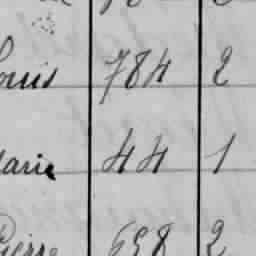 ouis 784 2
arie 44 1
Pierre 698 2